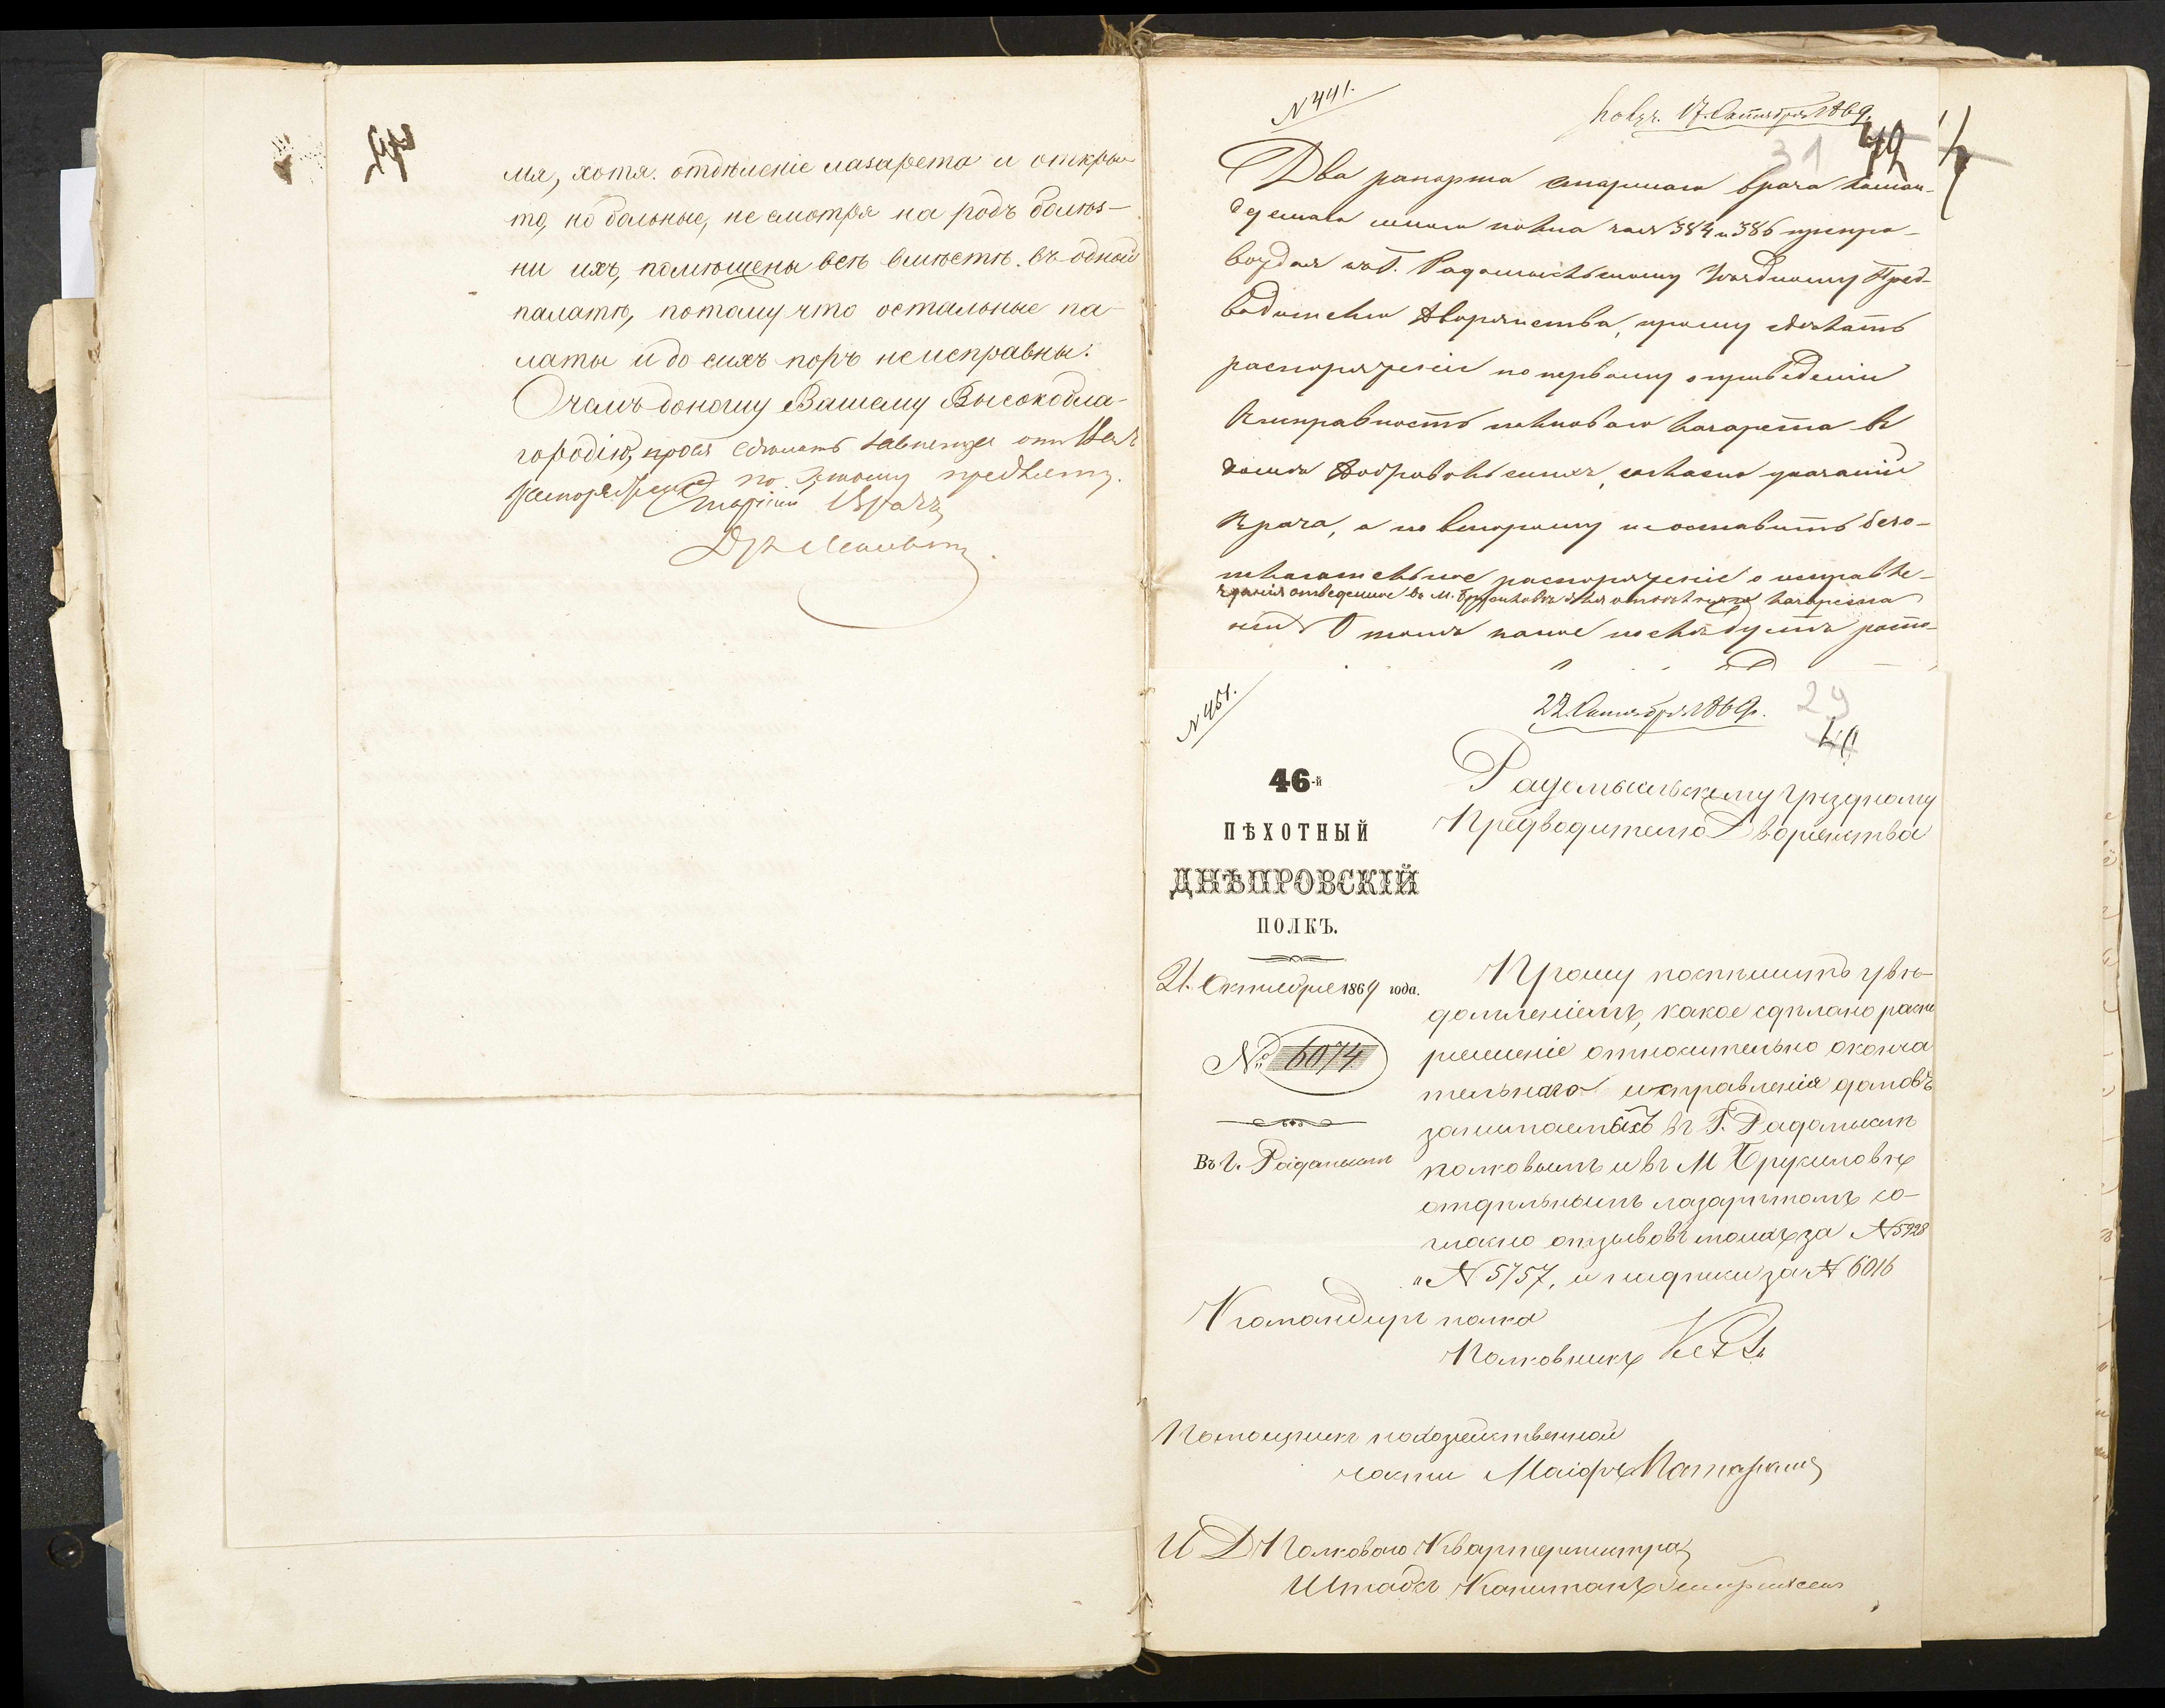 мя, хотя отдѣленіе лазарета и откры-
то, но больные, не смотря на родъ болѣз-
ни ихъ, помѣщены всѣ вмѣстѣ въ одной
палатѣ, потому что остальные па-
латы и до сихъ поръ не исправны.
О чемъ доношу Вашему Высокобла-
городію, прося сдѣлать зависящее отъ Васъ
распоряженіе по этому предмету.
Старшій Врачъ
N 441.
Получ. 17. Октября 1869.
31 42
Два рапорта старшаго врача коман-
дуемаго мною полка за NN 384 и 386 препро-
вождая къ Г. Радомысльскому Уѣздному Пред-
водителю Дворянства, прошу сдѣлать
распоряженіе по первому о приведеніи
въ исправность полковаго лазарета въ
домѣ Добровольскихъ, согласно указанію
Врача, а по второму не оставить безо-
тлагательное распоряженіе о исправле-
зданія отведенное въ М. Брусиловѣ для отдѣленія лазарета
ніи О томъ какое послѣдуетъ распо-
N 451.
22 Октября 1869.
29
40
46-й
ПѢХОТНЫЙ
ДНѢПРОВСКІЙ
ПОЛКЪ.
21. Октября 1869 года.
№ 6074
Въ г. Радомыслѣ
Радомысльскому Уѣздному
Предводителю Дворянства
Прошу поспѣшить увѣ-
домленіемъ, какое сдѣлано распо
ряженіе относительно оконча
тельнаго исправленія домовъ
занимаемыхъ въ Г. Радомыслѣ
полковымъ и въ М Брусиловѣ
отдѣльнымъ лазаретомъ со-
гласно отзывовъ моихъ за N 5928
и N 5757, и надписи за N 6016
Командиръ полка
Полковникъ
Помощникъ по хозяйственной
части Маіоръ
И Д Полковаго Квартермистра
Штабсъ Капитанъ